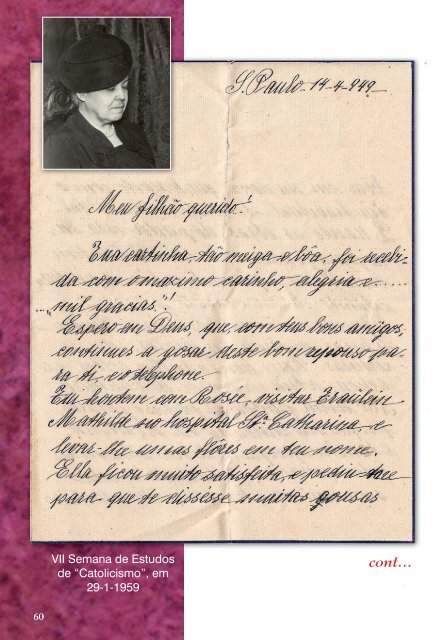 S. Paulo 14-4-949
Meu filhão querido!
Tua cartinha, tão meiga e bôa, foi recebi-
da com o maximo carinho, alegria e.....
..."mil gracias"!
Espero em Deus, que, com teus bons amigos,
continues a gosar deste bom repouso pa-
ra ti, e o telephone.
Fui hontem con Rosée, visitar Fraülein
Mathilde no hospital Sta Catharina, e
levar-lhe umas flôres em teu nome.
Ella ficou muito satisfeita, e pediu-me
para que te dissesse muitas cousas
VII Semana de Estudos
de "Catolicismo", em
29-1-1959
cont...
60